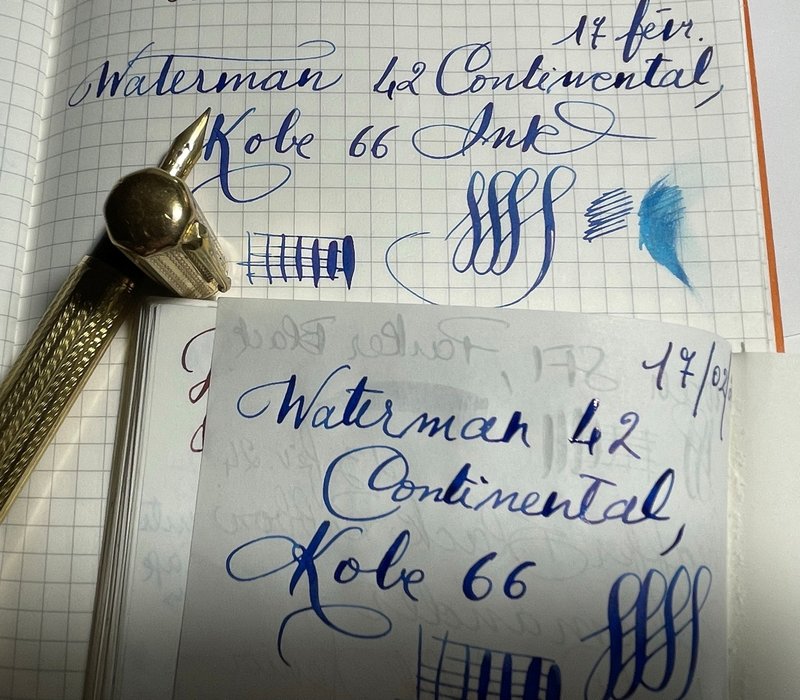 17 févr.
Waterman 42 Continental,
Kobe 66 Ink
17/02/
Waterman 42
Continental,
Kobe 66